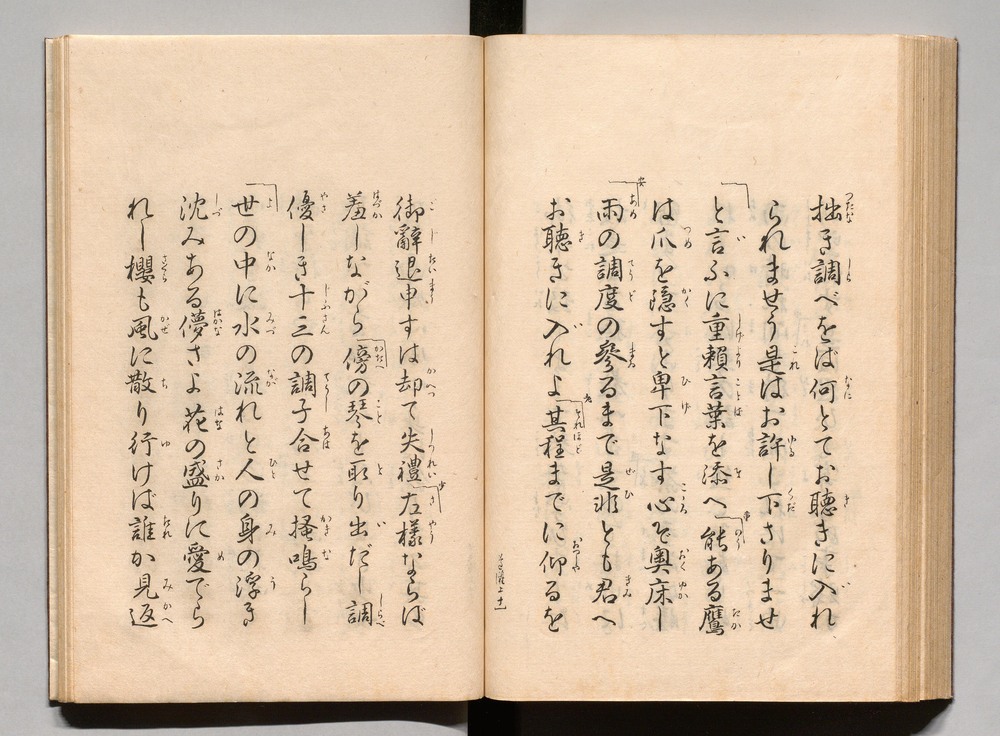 拙き調べをば何とてお聴きに入れ
られませう是はお許し下さりませ
と言ふに重頼言葉を添へ能ある鷹
は爪を隠すと卑下なす心ぞ奥床し
雨の調度の參るまで是非とも君へ
お聴きに入れよ其程までに仰るを
御辭退申すは却て失禮左樣ならば
羞しながら傍の琴を取り出だし調
優しき十三の調子合せて掻鳴らし
世の中に水の流れと人の身の浮き
沈みある儚さよ花の盛りに愛でら
れし櫻も風に散り行けば誰か見返